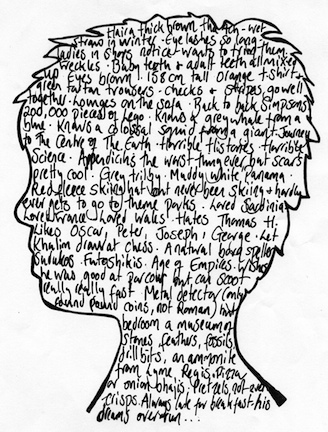 Hair a thick brown thatch - wet
straw in winter. Eyelashes so long,
ladies in shops notice & want to trade them.
Freckles. Baby teeth & adult teeth all mixed
up. Eyes brown. 158cm tall. Orange t-shirt,
green tartan trousers - checks & stripes go well
together. Lounges on the sofa. Back to back Simpsons
200,000 pieces of Lego. Knows a grey whale from a
blue. Knows a colossal squid from a giant. Journey
to the Centre of the Earth. Horrible Histories. Horrible
Science. Appendicitis the worst thing ever but scar's
pretty cool. Grey trilby. Muddy white Panama.
Red fleece skiing hat but never been skiing & hardly
ever gets to go to theme parks. Loved Sardinia
Loved France. Loved walks. Hates Thomas H.
Likes Oscar, Peter, Joseph, George. Let
Khalim draw at chess. A natural born speller
Sudokus. Futoshikis. Age of Empires. Wishes
he was good at parcour but can scoot
really really fast. Metal detector (only
found pound coins, not Roman) but
bedroom a museum of
stones, feathers, fossils,
drill bits, an ammonite
from Lyme Regis. Pizza
or onion bhajis. Pretzels not ever
crisps. Always late for breakfast - his
dreams overrun...